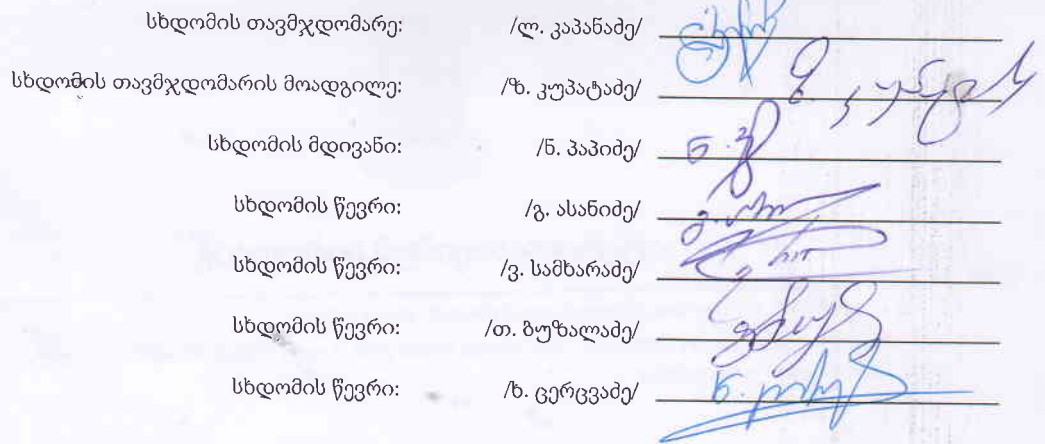 სხდომის თავმჯდომარე: /ლ. კაპანაძე/
სხდომის თავმჯდომარის მოადგილე: /ზ. კუპატაძე/
სხდომის მდივანი: /ნ. პაპიძე/
სხდომის წევრი: /გ. ასანიძე/
სხდომის წევრი: /ვ. სამხარაძე/
სხდომის წევრი: /თ. ბუზალაძე/
სხდომის წევრი: /ხ. ცერცვაძე/